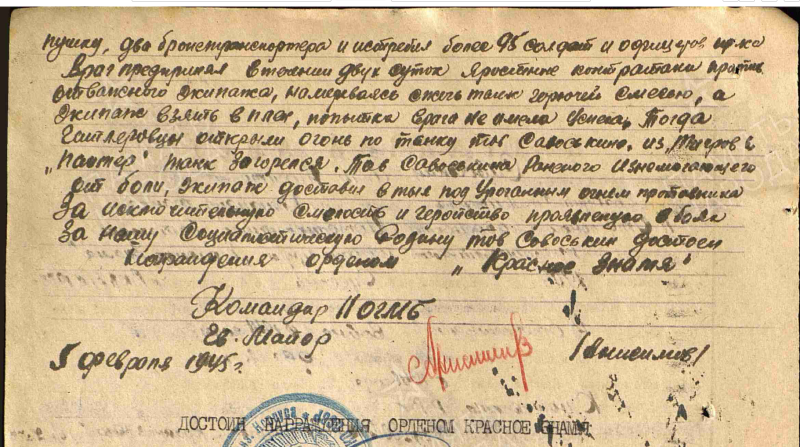 пушку, два бронетранспортера и истребил более 95 солдат и офицеров пр-ка
Враг предпринял в течении двух суток яростные контратаки против
отважного экипажа, намереваясь сжечь танк горючей смесью, а
экипаж взять в плен, попытка врага не имела успеха. Тогда
гитлеровцы открыли огонь по танку тов Савоськина, из „Тигров" и
„Пантер" танк загорелся. Тов Савоськина раненого изнемогающего
от боли, экипаж доставил в тыл под ураганным огнем противника
За исключительную смелость и геройство проявленую в боях
за нашу Социалистическую Родину тов Савоськин достоин
награждения орденом „Красное Знамя"
Командир
Гв. Майор
/Анисимов/
5 февраля 1945 г.
ДОСТОИН НАГРАЖДЕНИЯ ОРДЕНОМ КРАСНОЕ ЗНАМЯ